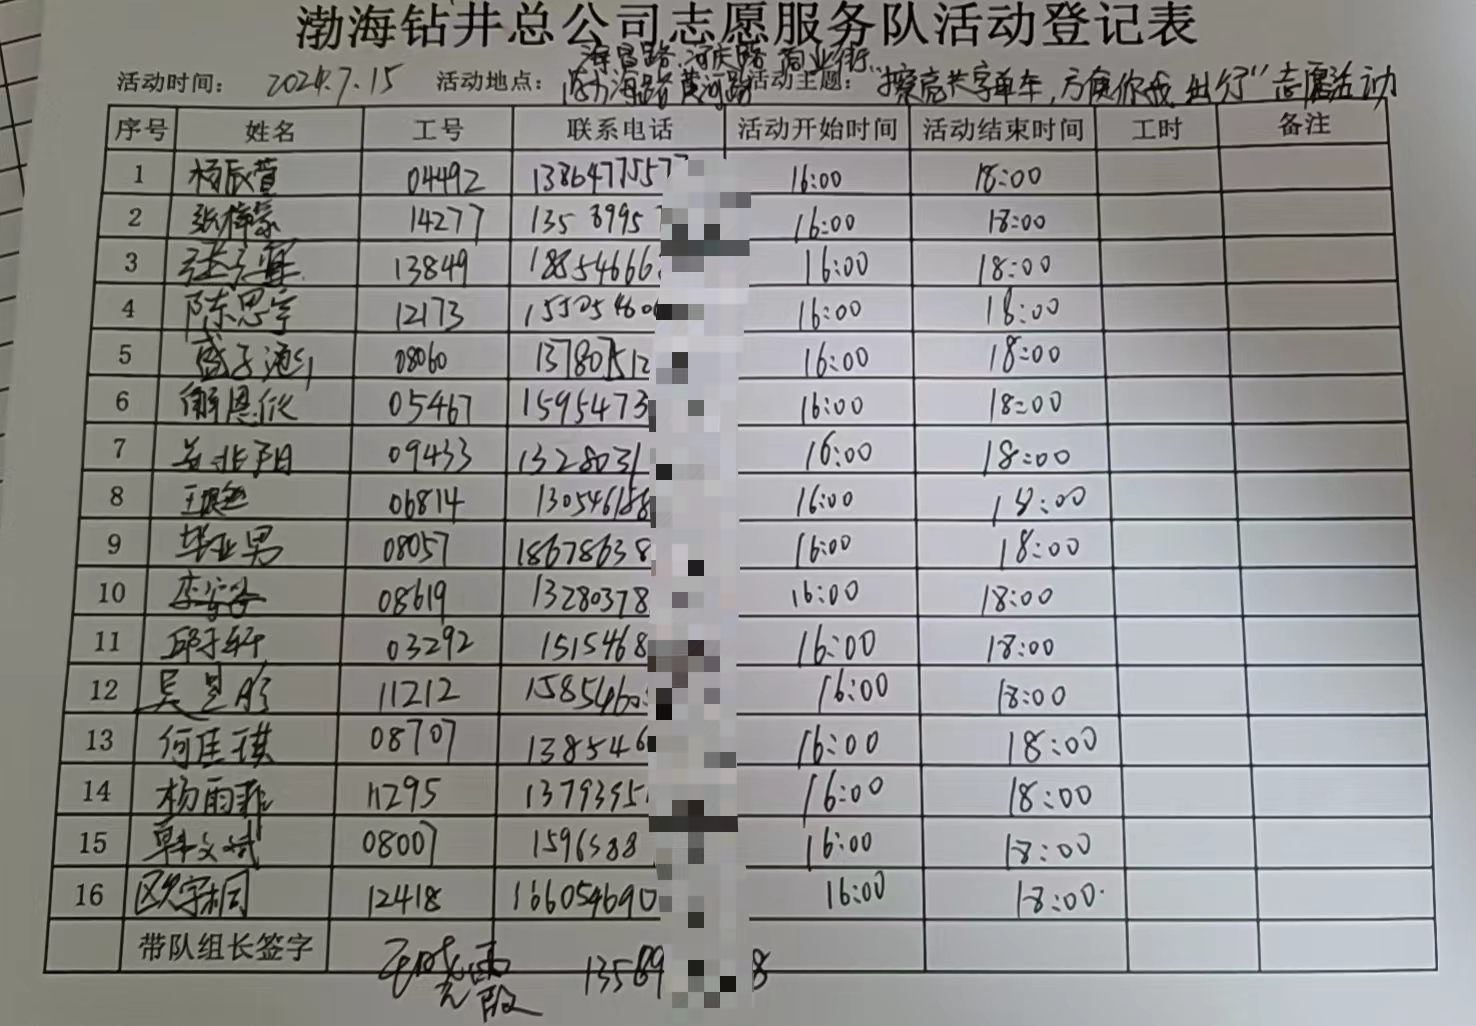 渤海钻井总公司志愿服务队活动登记表
海宫路、河庆路 商业街
活动时间: 2024.7.15 活动地点: 渤海路 黄河路 活动主题: "擦亮共享单车,方便你我出行"志愿活动
序号 姓名 工号 联系电话 活动开始时间 活动结束时间 工时 备注
1 杨辰萱 04492 1386477557 16:00 18:00
2 张梓 14277 135 8995 16:00 18:00
3 13849 18854666 16:00 18:00
4 陈思宇 12173 155054606 16:00 18:00
5 盛子 08060 13780512 16:00 18:00
6 解恩欣 05467 1595473 16:00 18:00
7 兆阳 09433 1328031 16:00 18:00
8 王 06814 130546158 16:00 18:00
9 毕亚男 08057 18678638 16:00 18:00
10 李 08619 13280378 16:00 18:00
11 邱子轩 03292 1515468 16:00 18:00
12 吴昱彤 11212 1585460 16:00 18:00
13 何佳琪 08707 138546 16:00 18:00
14 杨雨菲 11295 1379395 16:00 18:00
15 韩文斌 08007 1596588 16:00 18:00
16 欧宇桐 12418 166054690 16:00 18:00
带队组长签字 王晓霞 13589 8